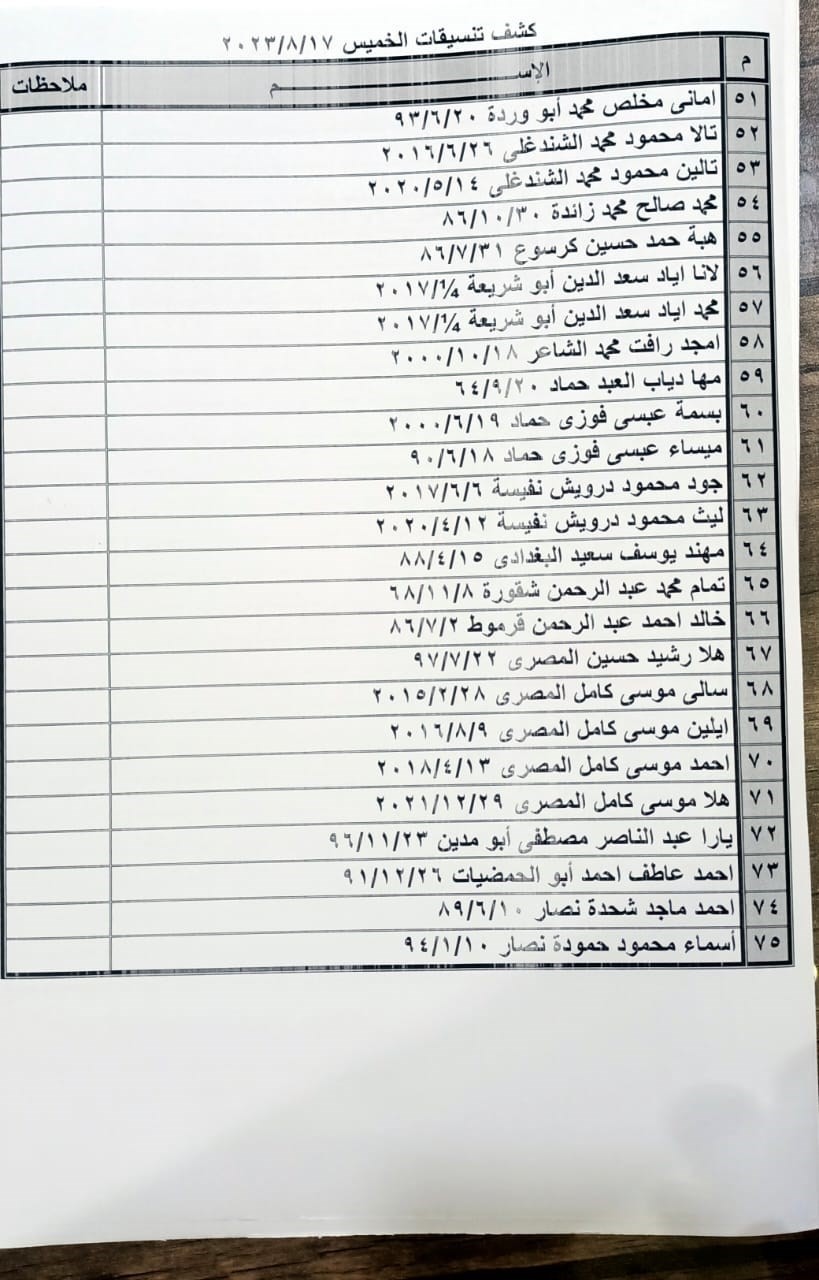 كشف تنسيقات الخميس ٢٠٢٣/٨/١٧
م الإســـــــــم ملاحظات
٥١ امانى مخلص محمد أبو وردة ٩٣/٦/٢٠
٥٢ تالا محمود محمد الشندغلى ٢٠١٦/٦/٢٦
٥٣ تالين محمود محمد الشندغلى ٢٠٢٠/٥/١٤
٥٤ محمد صالح محمد زائدة ٨٦/١٠/٣٠
٥٥ هبة حمد حسين كرسوع ٨٦/٧/٣١
٥٦ لانا اياد سعد الدين أبو شريعة ٢٠١٧/¼
٥٧ محمد اياد سعد الدين أبو شريعة ٢٠١٧/¼
٥٨ امجد رافت محمد الشاعر ٢٠٠٠/١٠/١٨
٥٩ مها دياب العبد حماد ٦٤/٩/٢٠
٦٠ بسمة عبسى فوزى حماد ٢٠٠٠/٦/١٩
٦١ ميساء عبسى فوزى حماد ٩٠/٦/١٨
٦٢ جود محمود درويش نفيسة ٢٠١٧/٦/٦
٦٣ ليث محمود درويش نفيسة ٢٠٢٠/٤/١٢
٦٤ مهند يوسف سعيد البغدادى ٨٨/٤/١٥
٦٥ تمام محمد عبد الرحمن شقورة ٦٨/١١/٨
٦٦ خالد احمد عبد الرحمن قرموط ٨٦/٧/٢
٦٧ هلا رشيد حسين المصرى ٩٧/٧/٢٢
٦٨ سالى موسى كامل المصرى ٢٠١٥/٢/٢٨
٦٩ ايلين موسى كامل المصرى ٢٠١٦/٨/٩
٧٠ احمد موسى كامل المصرى ٢٠١٨/٤/١٣
٧١ هلا موسى كامل المصرى ٢٠٢١/١٢/٢٩
٧٢ يارا عبد الناصر مصطفى أبو مدين ٩٦/١١/٢٣
٧٣ احمد عاطف احمد أبو الحمضيات ٩١/١٢/٢٦
٧٤ احمد ماجد شحدة نصار ٨٩/٦/١٠
٧٥ أسماء محمود حمودة نصار ٩٤/١/١٠